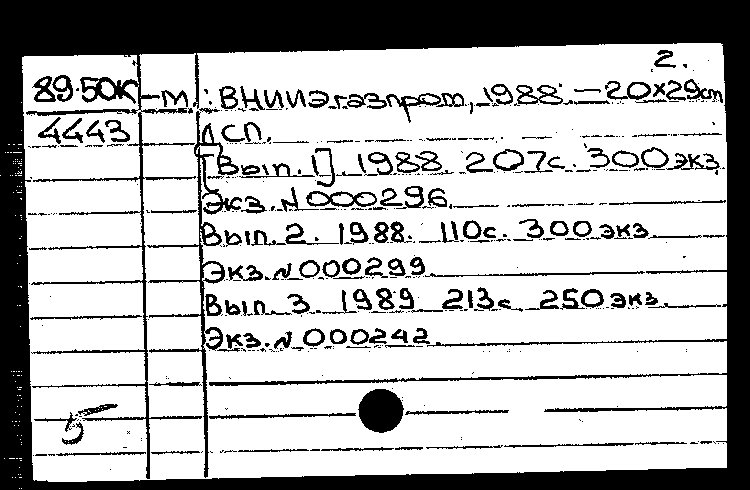 2.
89-50К -М.: ВНИИЭгазпром, 1988. - 20×29 cm
4443 ДСП.
[Вып. 1]. 1988. 207с. 300 экз.
Экз. N 000296.
Вып. 2. 1988. 110с. 300 экз.
Экз. N 000299.
Вып. 3. 1989. 213с. 250 экз.
Экз. N 000242.
5